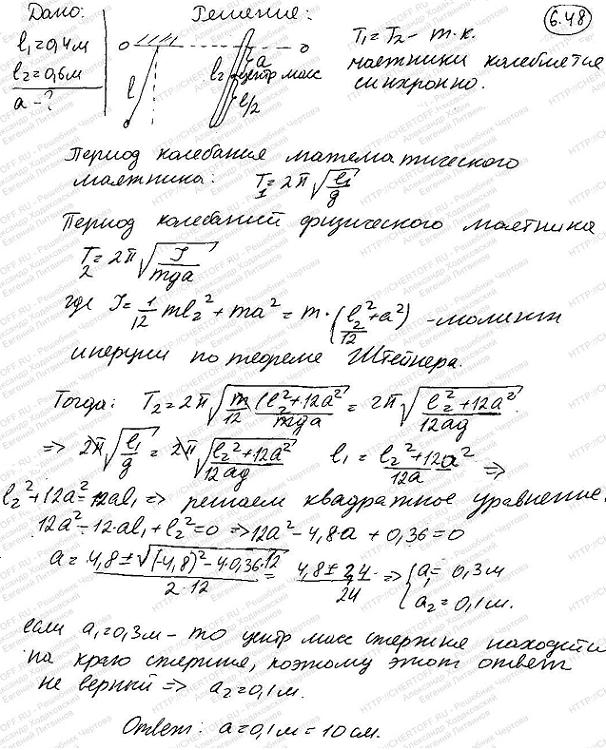 Дано:
Решение:
6.48
l₁=0,4м
l₂=0,6м
a-?
O
O
l
l₂
a
центр масс
l/2
T₁=T₂ - т.к.
маятники колеблются
синхронно.
Период колебания математического
маятника: T₁=2π√(l₁/g)
Период колебаний физического маятника
T₂=2π√(J/mga)
где J=1/12 ml₂²+ma²=m·(l₂²/12+a²) - момент
инерции по теореме Штейнера.
Тогда: T₂=2π√(m/12 (l₂²+12a²)/mga) = 2π√((l₂²+12a²)/12ag)
=> 2π√(l₁/g) = 2π√((l₂²+12a²)/12ag) l₁=(l₂²+12a²)/12a =>
l₂²+12a²=12al₁ => решаем квадратное уравнение.
12a²-12·al₁+l₂²=0 => 12a²-4,8·a+0,36=0
a=(4,8±√((-4,8)²-4·0,36·12))/(2·12) = (4,8±2,4)/24 => {a₁=0,3м
a₂=0,1м.
если a₁=0,3м - то центр масс стержня находится
на краю стержня, поэтому этот ответ
не верный => a₂=0,1м.
Ответ: a=0,1м=10см.
HTTP://CHERTOFF.RU - Решебник Чертова
Александр Ходаковский
Евгений Литвинов